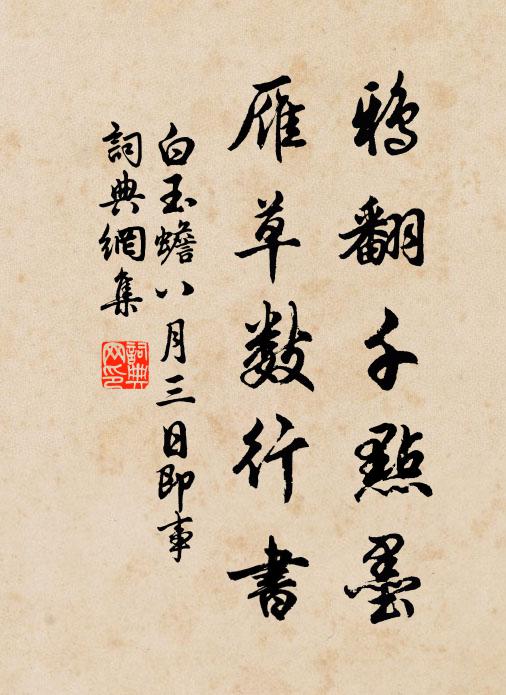 鴉翻千點墨
雁草數行書
白玉蟾八月三日即事
詞典網集
詞典網印